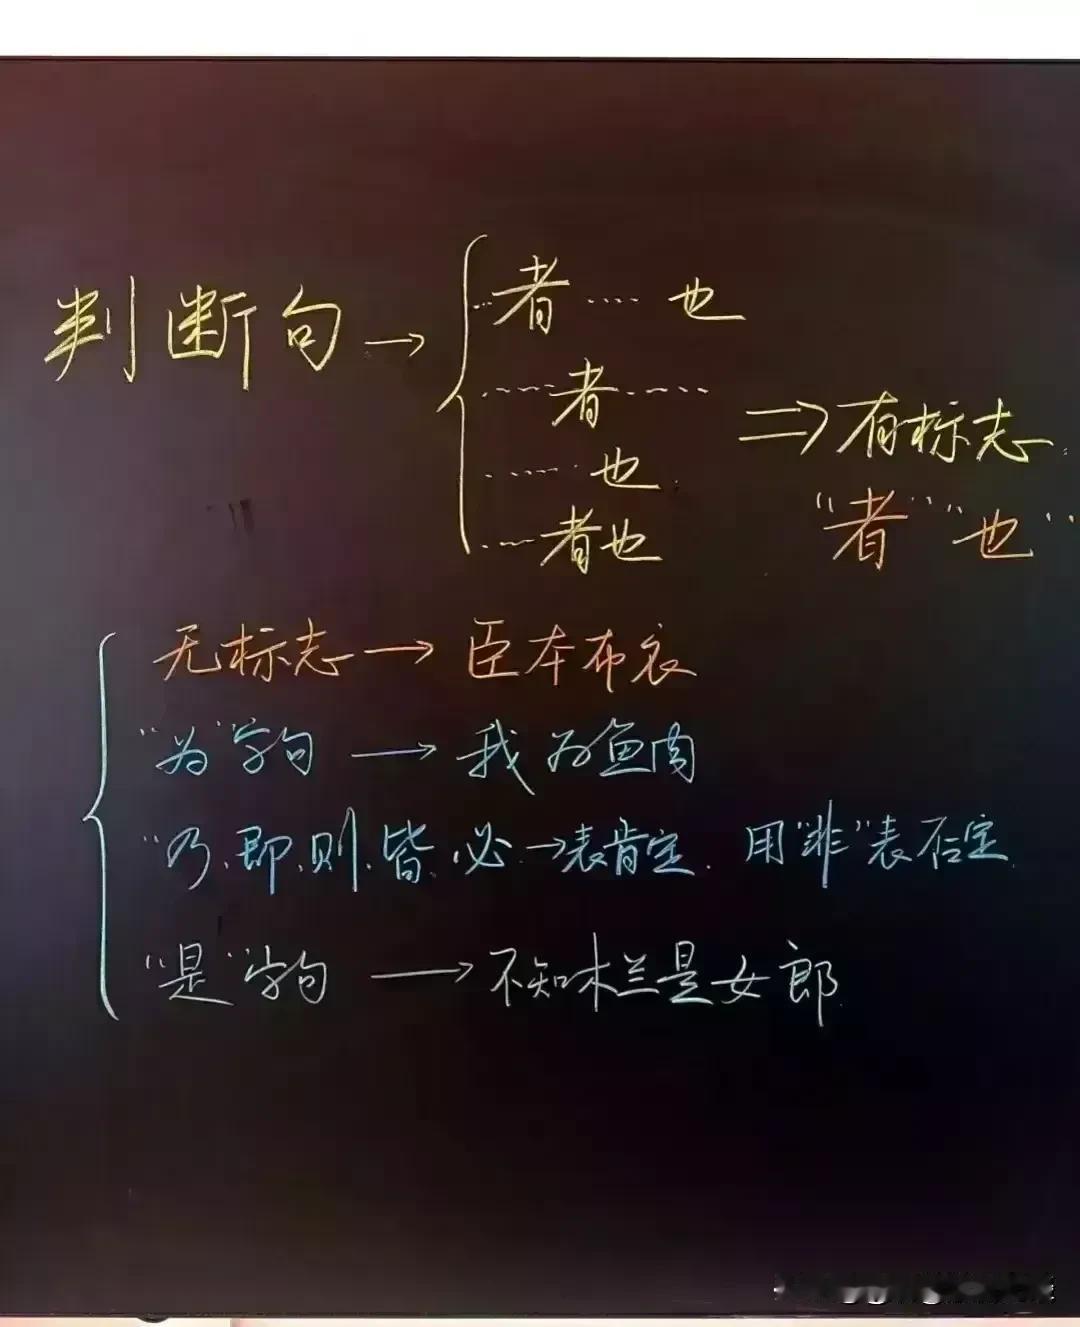 判断句→
…者……也
……者……
……也.
……者也
⇒有标志.
"者""也"
无标志→臣本布衣
"为"字句→我为鱼肉
"乃、即、则、皆、必→表肯定. 用"非"表否定.
"是"字句→不知木兰是女郎.